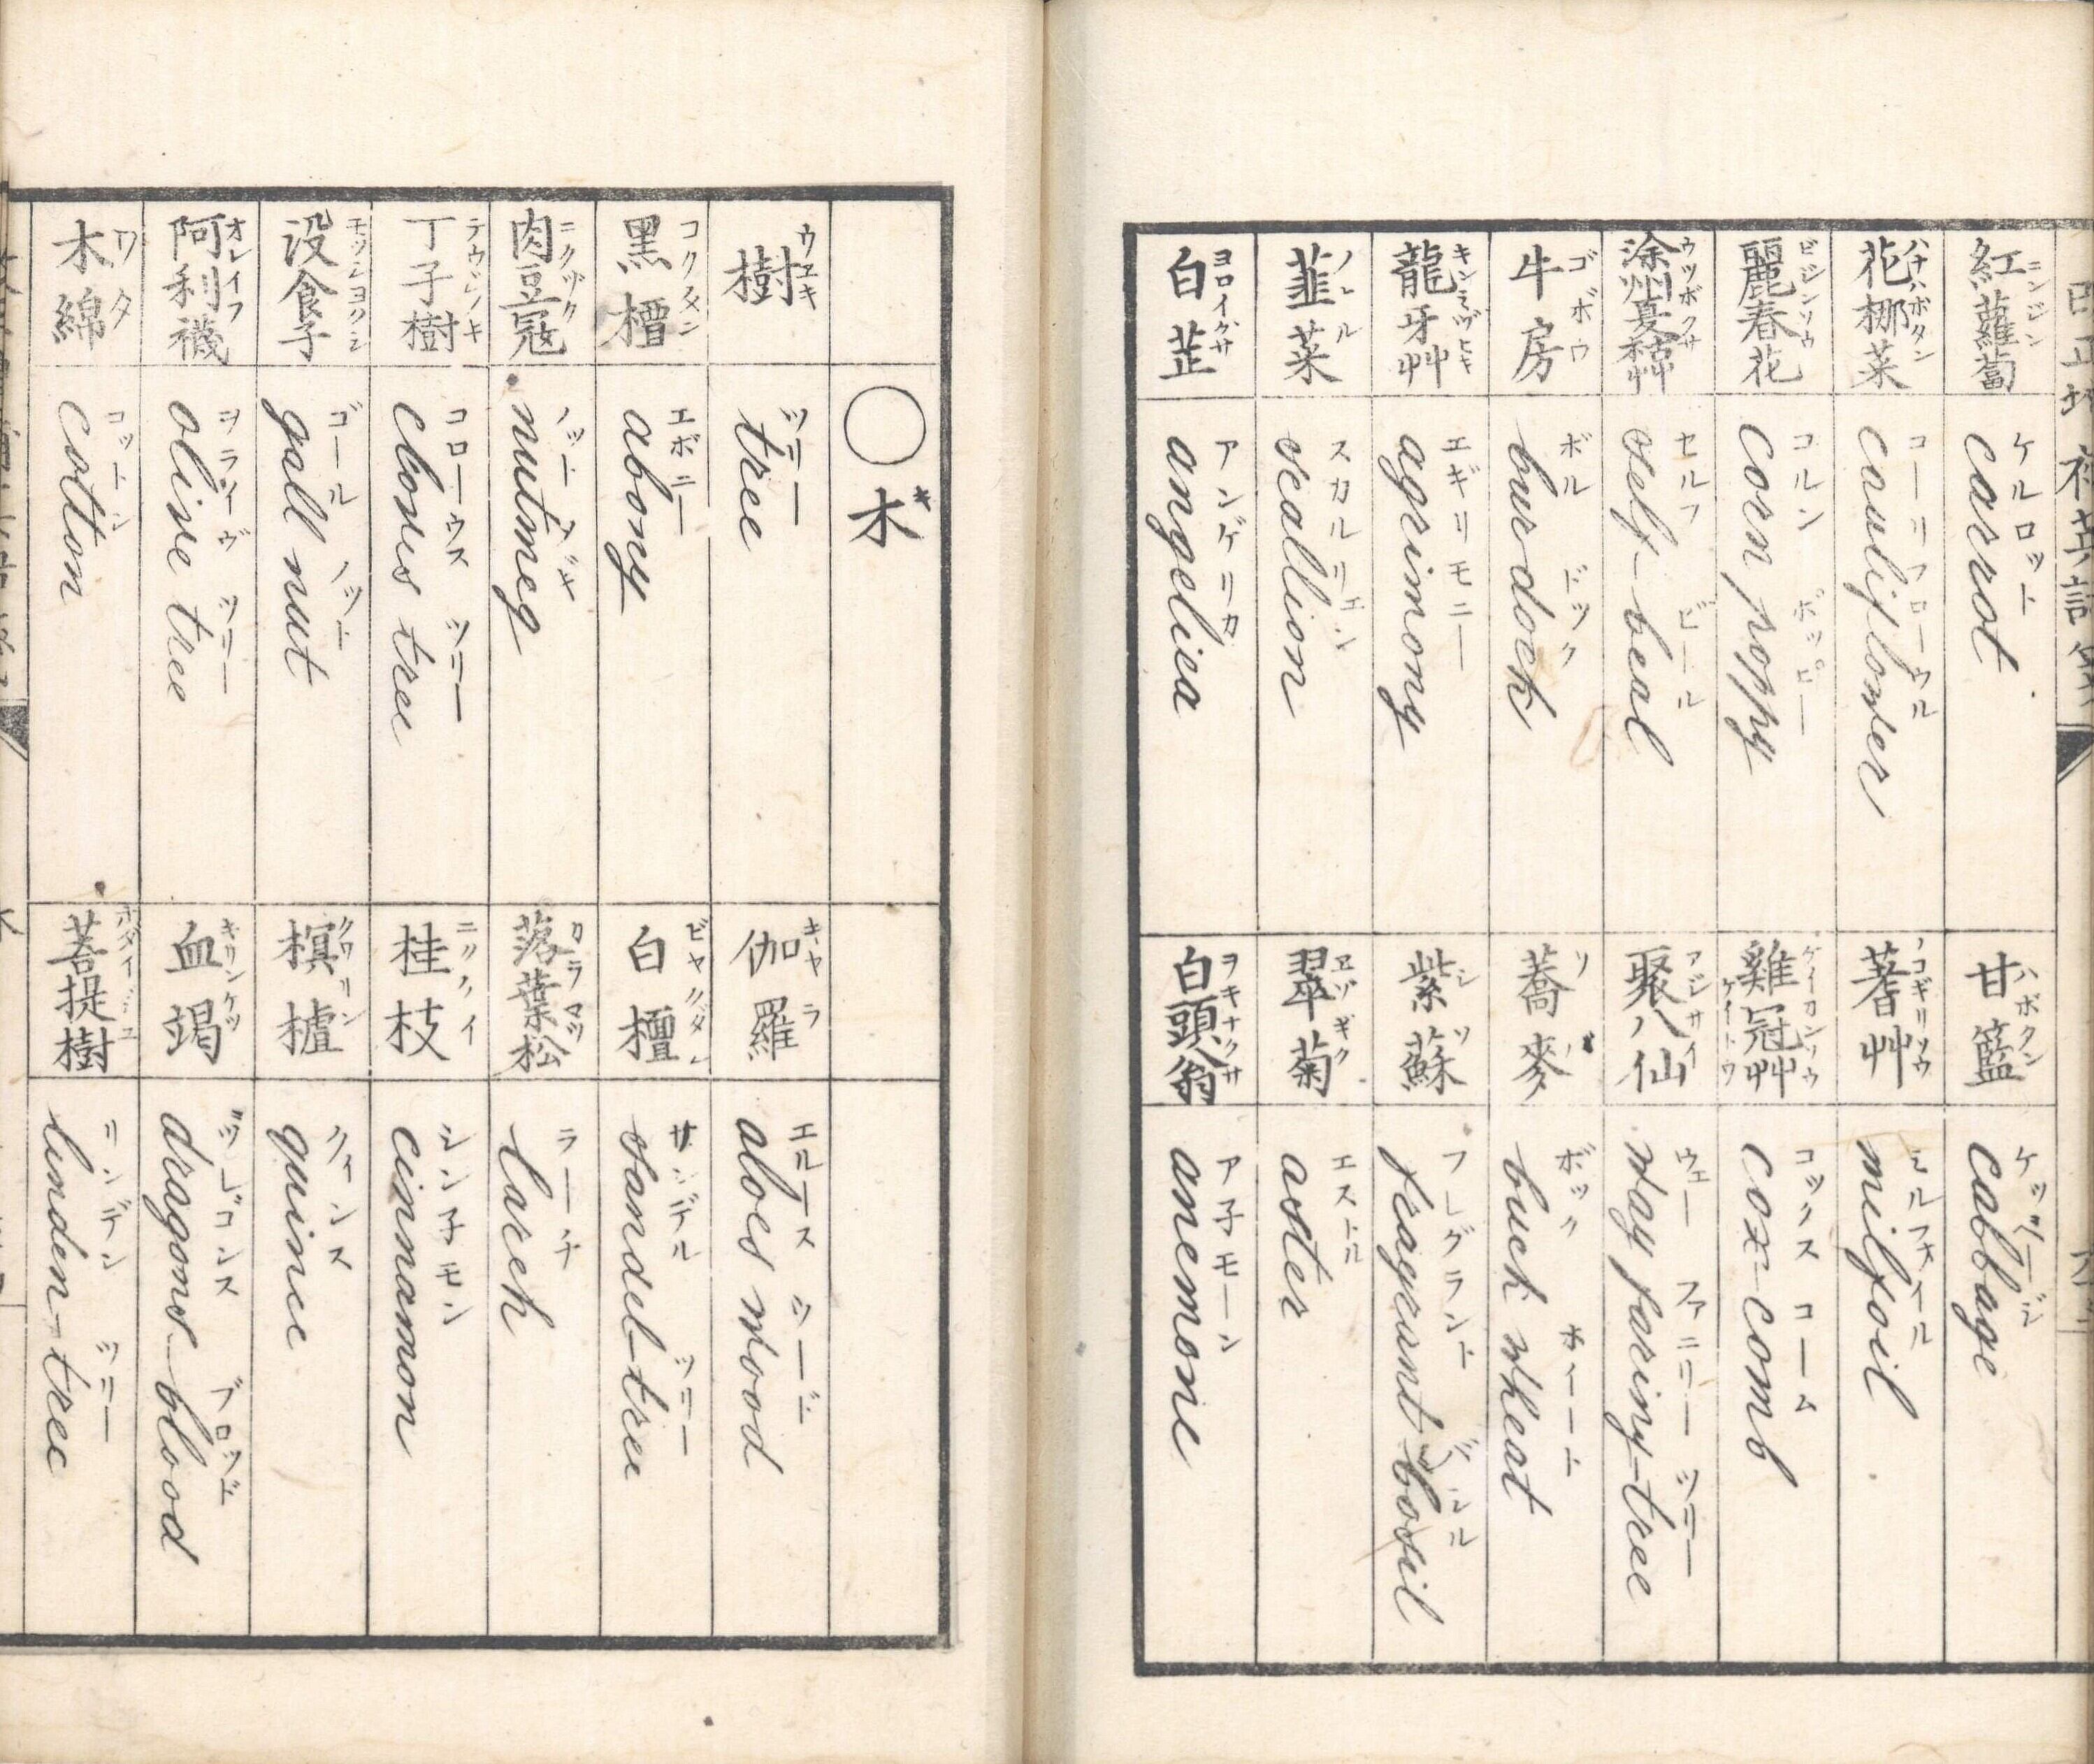 紅蘿蔔 ニンジン
carrot ケルロット
花椰菜 ハナハボタン
cauliflower コーリフローウル
麗春花 ビジンソウ
corn poppy コルン ポッピー
滁州夏枯艸 ウツボクサ
self-beal セルフ ビール
牛房 ゴボウ
bur dock ボル ドック
龍牙艸 キンミヅヒキ
agrimony エギリモニー
韮菜 ノビル
scallion スカルリエン
白芷 ヨロイグサ
angelica アンゲリカ
甘籃 ハボタン
cabbage ケッベージ
蓍艸 ノコギリソウ
milfoil ミルフォイル
雞冠艸 ケイカンソウ ケイトウ
cox-comb コックス コーム
聚八仙 アジサイ
way faring-tree ウェー ファニリー ツリー
蕎麥 ソバ
buck wheat ボック ホイート
紫蘇 シソ
fragrant basil フレグラント バシル
翠菊 ヱゾギク
aster エストル
白頭翁 ヲキナクサ
anemone ア子モーン
○木 キ
樹 ウエキ
tree ツリー
黒檀 コクタン
abony エボニー
肉豆寇 ニクヅク
nutmeg ノットメギ
丁子樹 テウジノキ
cloves tree コローウス ツリー
没食子 モツショクシ
gall nut ゴール ノット
阿利襪 オレイフ
olive tree ヲライヴ ツリー
木綿 ワタ
cotton コットン
伽羅 キャラ
aloes wood エルース ウード
白檀 ビャクダン
sandel-tree サンデル ツリー
落葉松 カラマツ
larch ラーチ
桂枝 ニクケイ
cinnamon シン子モン
榠樝 クワリン
quince クィンス
血竭 キリンケツ
dragons-blood ヅレゴンス ブロッド
菩提樹 ボダイジユ
linden-tree リンデン ツリー